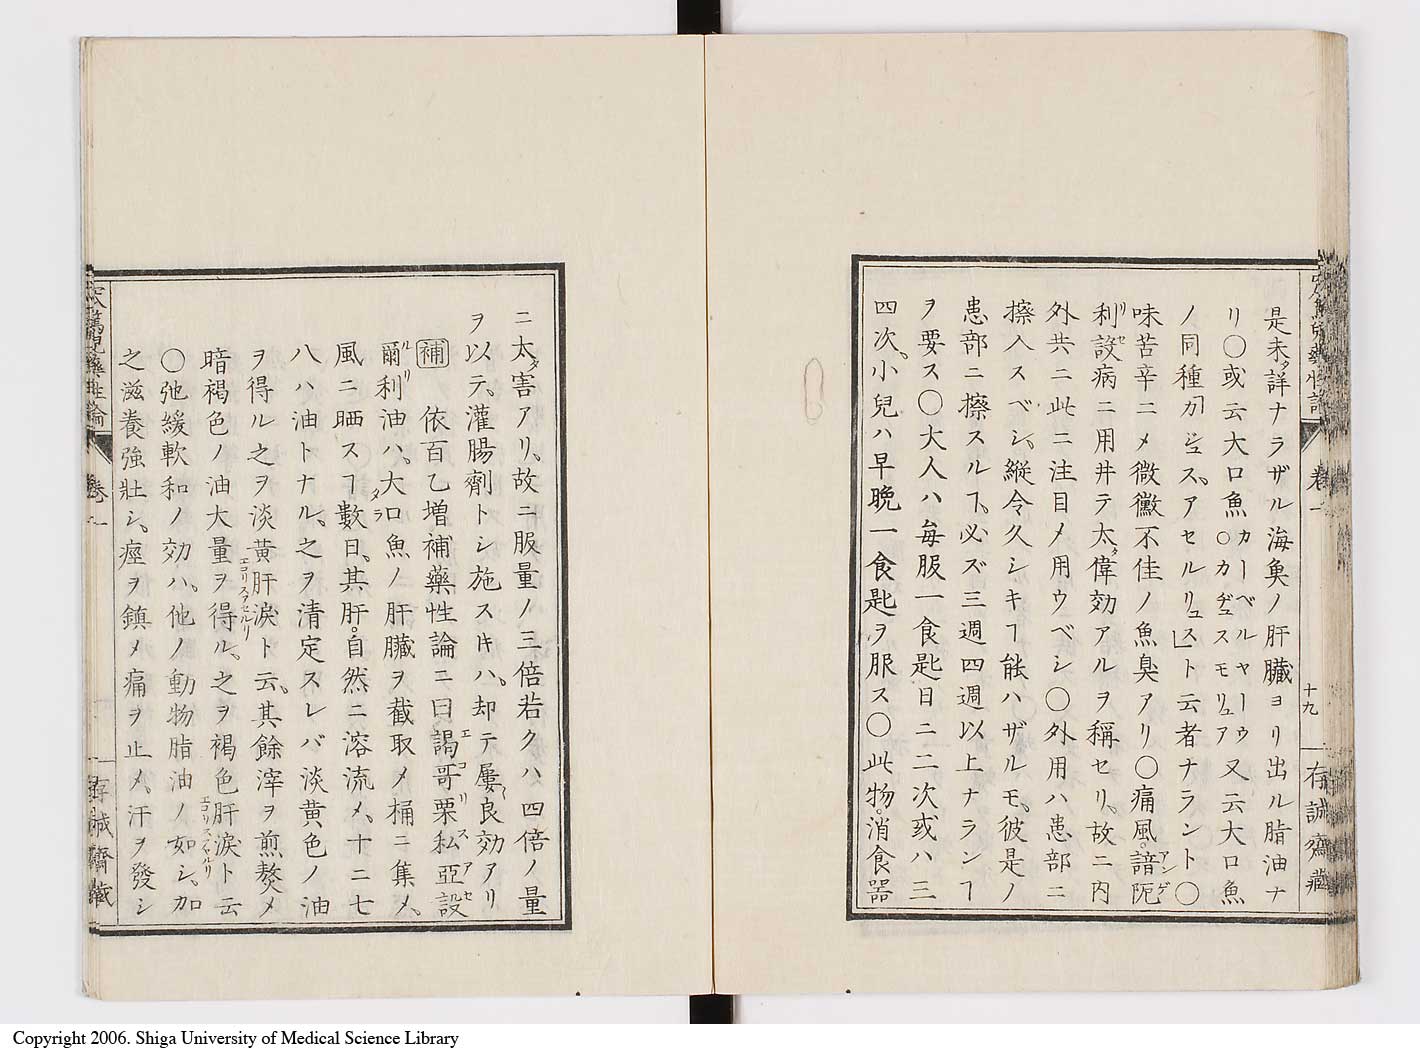 是未タ詳ナラザル海魚ノ肝臓ヨリ出ル脂油ナ
リ〇或云大口魚カーベルヤーウ又云大口魚
ノ同種カジュス。アセルリュス」ト云者ナラント〇
味苦辛ニメ微黴不佳ノ魚臭アリ〇痛風。諳阨アンゲ
利設リセ病ニ用井テ太タ偉効アルヲ稱セリ、故ニ内
外共ニ此ニ注目メ用ウベシ〇外用ハ患部ニ
擦入スベシ、縦令久シキヿ能ハザルモ、彼是ノ
患部ニ擦スルヿ、必ズ三週四週以上ナランヿ
ヲ要ス〇大人ハ毎服一食匙日ニ二次或ハ三
四次、小兒ハ早晩一食匙ヲ服ス〇此物。消食器
十九
存誠齋藏
ニ太タ害アリ、故ニ服量ノ三倍若クハ四倍ノ量
ヲ以テ、灌腸劑トシ施スキハ、却テ屢良効アリ
補 依百乙増補藥性論ニ曰謁哥栗私亞設エコリスアセ
爾利ルリ油ハ、大口魚タラノ肝臓ヲ截取メ桶ニ集メ、
風ニ晒スヿ數日、其肝。自然ニ溶流メ、十二七
八ハ油トナル、之ヲ清定スレバ淡黄色ノ油
ヲ得ル之ヲ淡黄肝涙エコリスアセルリト云、其餘滓ヲ煎熬メ
暗褐色ノ油大量ヲ得ル、之ヲ褐色肝涙ト云
〇弛緩軟和ノ効ハ、他ノ動物脂油ノ如シ、加
之滋養強壯シ、痙ヲ鎮メ痛ヲ止メ、汗ヲ發シ
窊篤兒藥性論
卷一
存誠齋藏
Copyright 2006. Shiga University of Medical Science Library